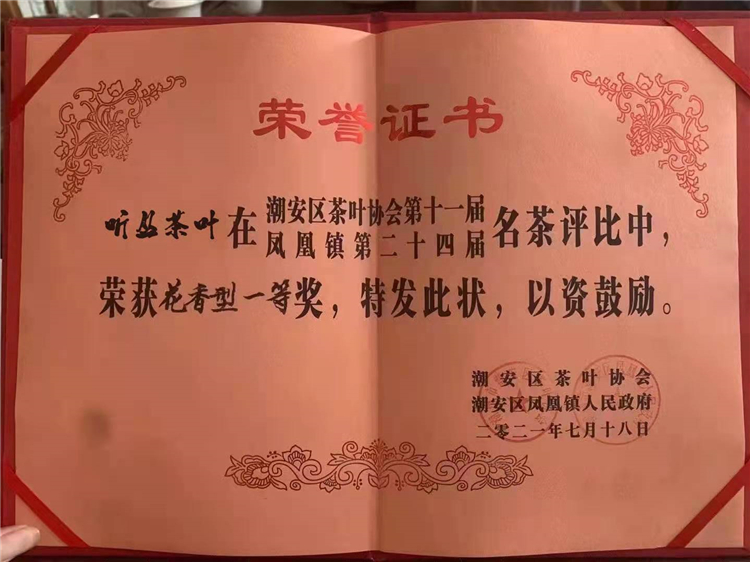 荣誉证书
听丛茶叶在潮安区茶叶协会第十一届
凤凰镇第二十四届名茶评比中，
荣获花香型一等奖，特发此状，以资鼓励。
潮安区茶叶协会
潮安区凤凰镇人民政府
二零二一年七月十八日